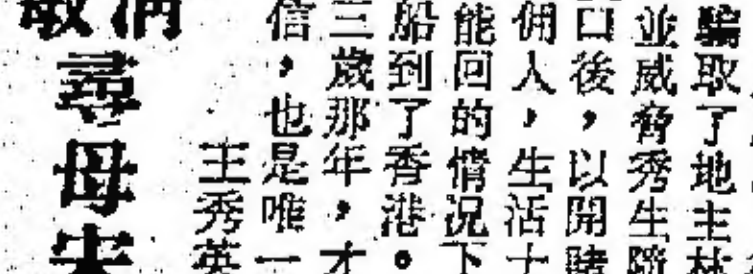 騙取了地主林
並威脅秀生
口後，以開賭
佣人，生活十
能回的情況下
船到了香港。
三歲那年，才
信，也是唯一
王秀英
尋母